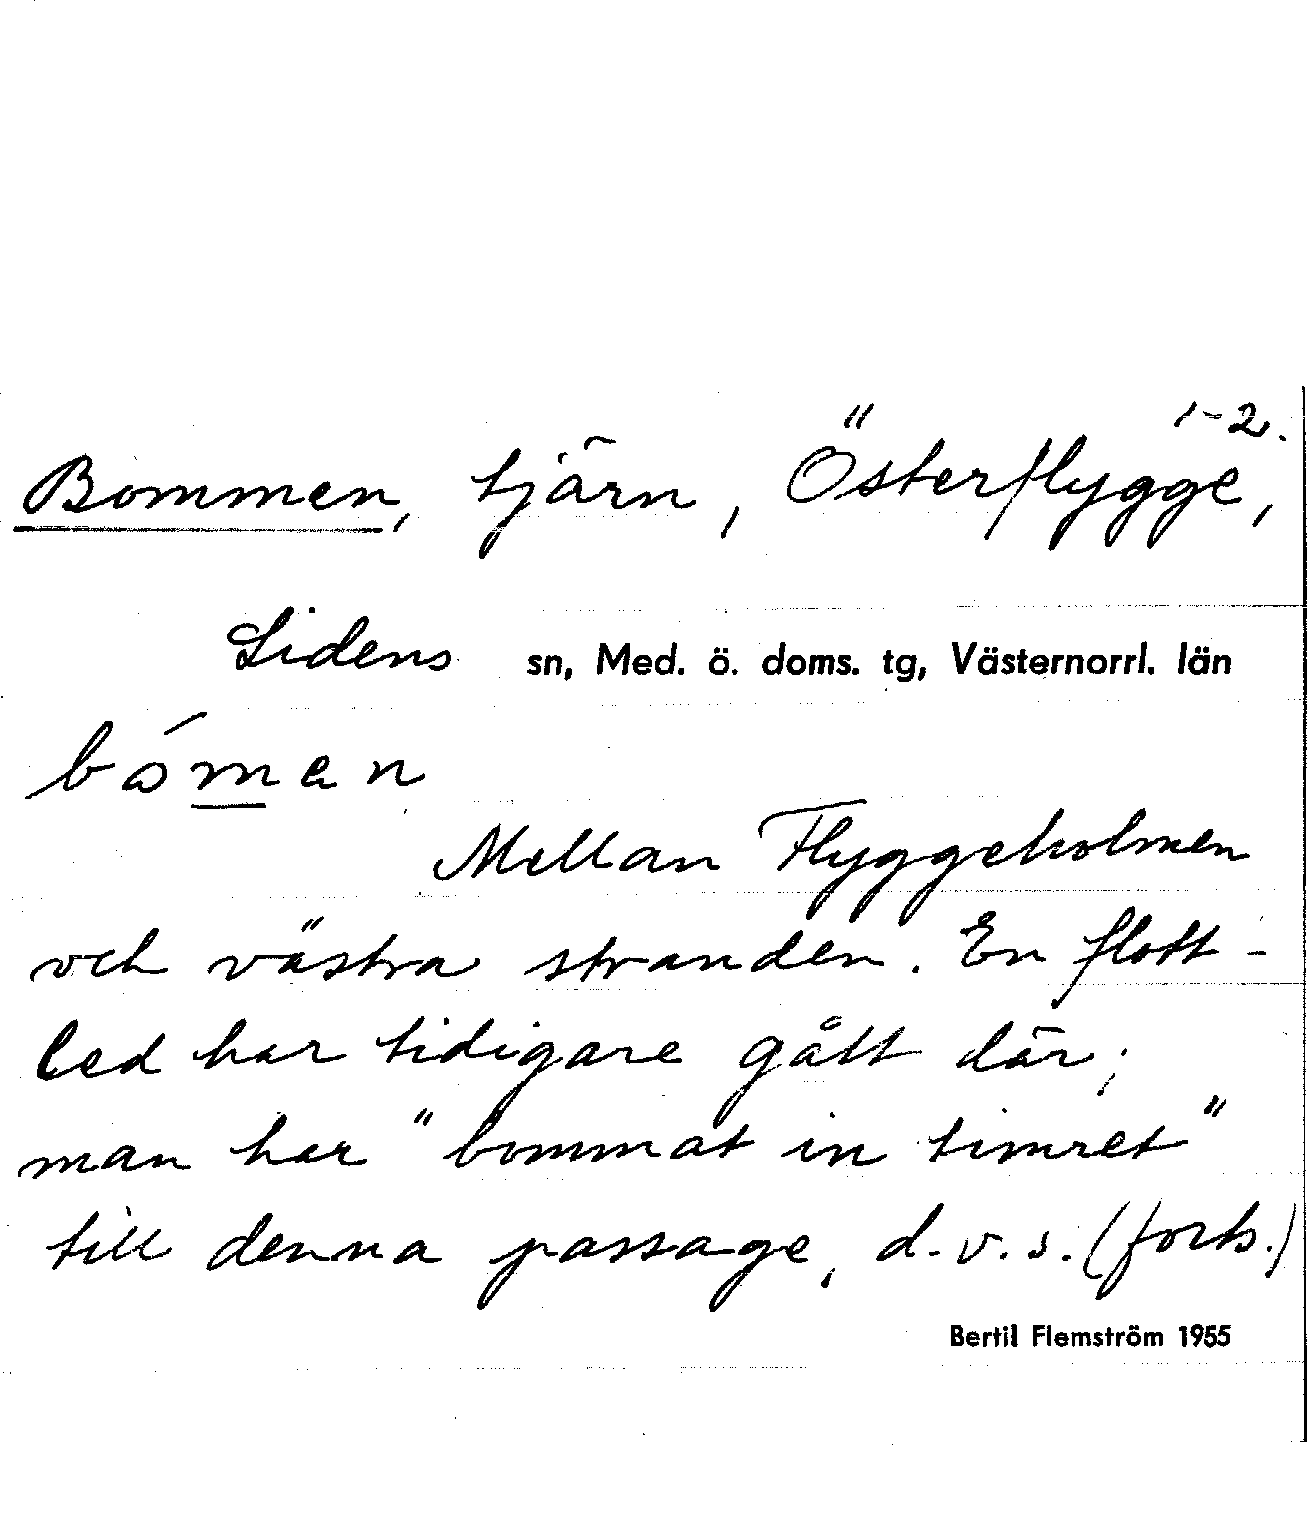 1-2.
Bommen, tjärn, Österflygge,
Lidens sn, Med. ö. doms. tg, Västernorrl. län
bómen
Mellan Flyggeholmen
och västra stranden. En flott-
led har tidigare gått där;
man har "bommat in timret"
till denna passage, d.v.s. (forts.)
Bertil Flemström 1955